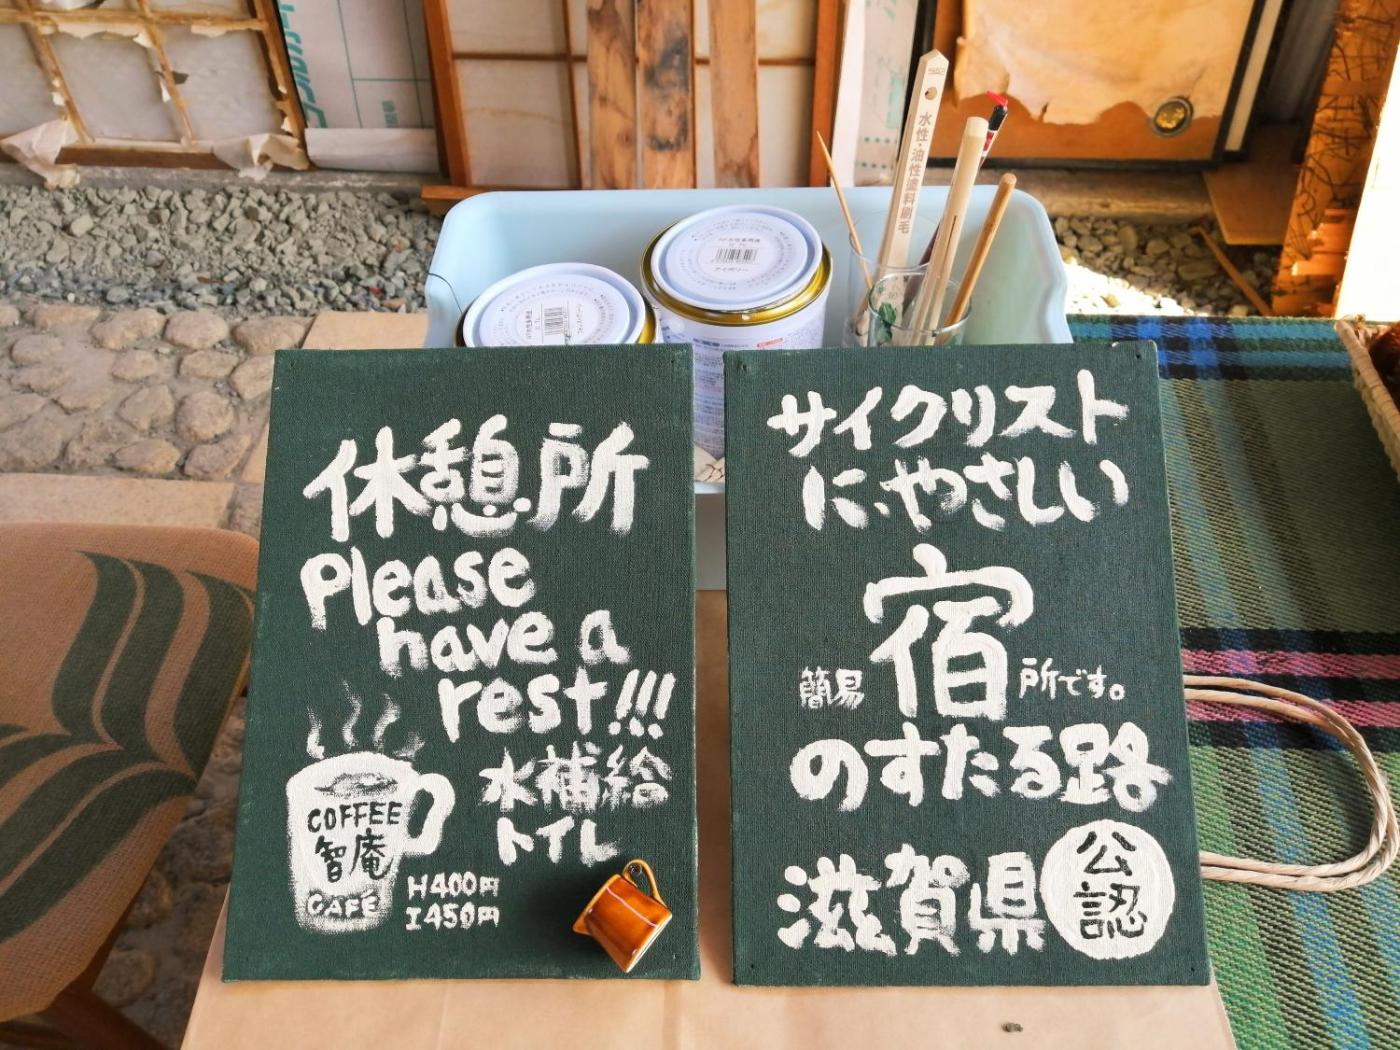 水性・油性塗料刷毛
アイボリー
休憩所
Please
have a
rest!!!
水補給
トイレ
COFFEE
智庵
CAFE
H400円
I450円
サイクリスト
にやさしい
簡易宿所です。
のすたる路
滋賀県
公認